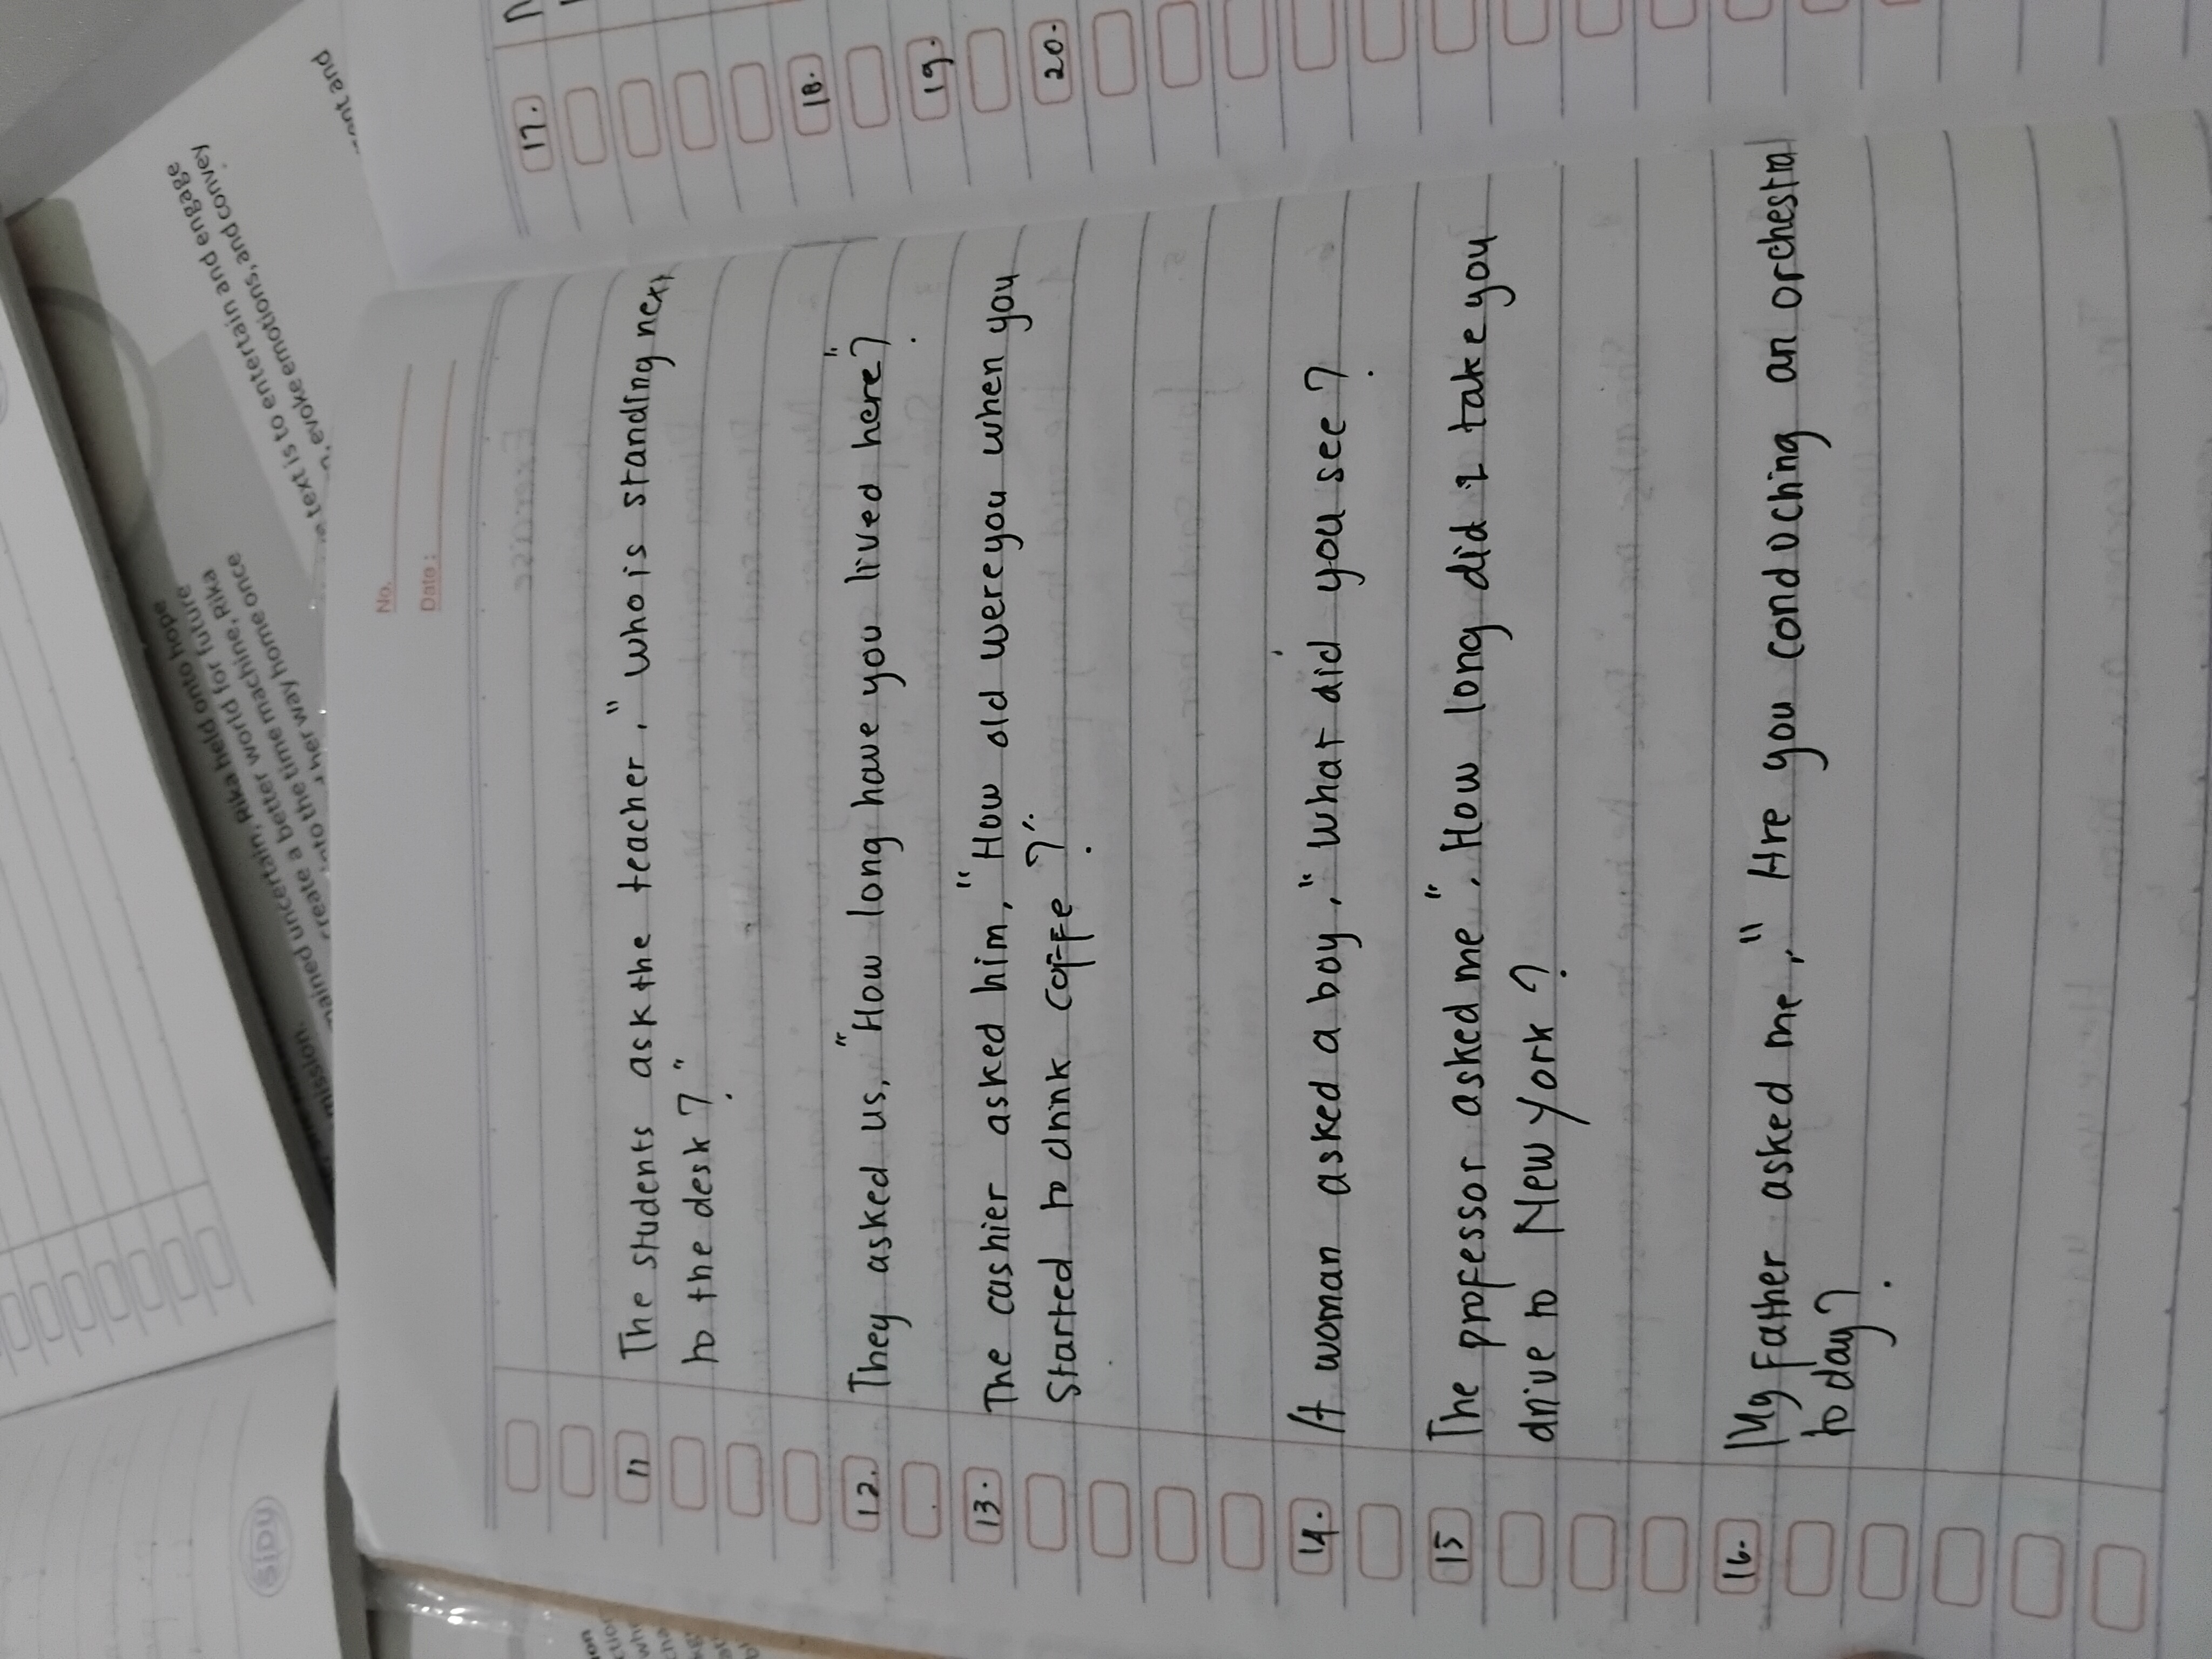 SiDU
mission.
mained uncertain, Rika held onto hope
create a better world for future
into the time machine, Rika
her way home once
text is to entertain and engage
evoke emotions, and convey
and
No.
Date :
11 The students ask the teacher, "Who is standing next
to the desk ?"
12. They asked us, "How long have you lived here?"
13. The cashier asked him, "How old were you when you
started to drink coffe ?"
14. A woman asked a boy, "What did you see ?
15 The professor asked me ", How long did I take you
drive to New York ?
16. My Father asked me, " Are you conduching an orchestra
today?
17.
18.
19.
20.